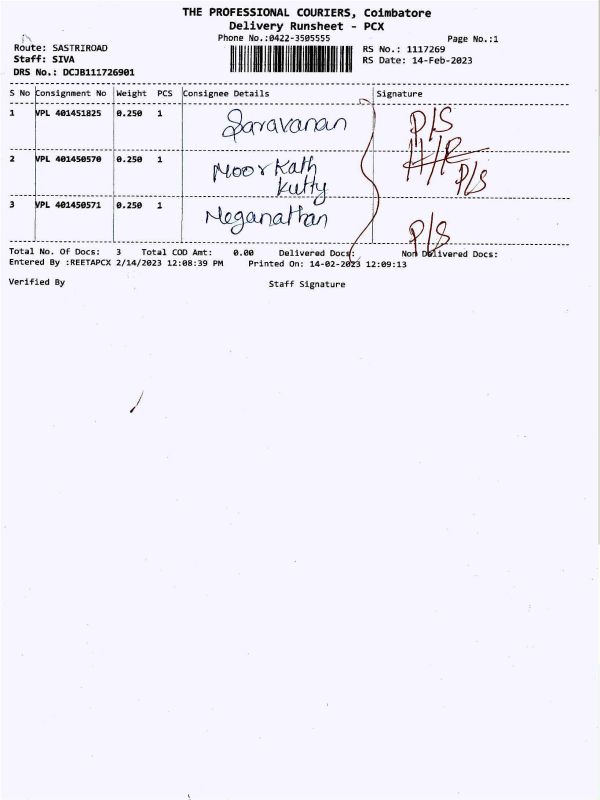 THE PROFESSIONAL COURIERS, Coimbatore
Delivery Runsheet - PCX
Phone No.:0422-3505555
Page No.:1
Route: SASTRIROAD
RS No.: 1117269
Staff: SIVA
RS Date: 14-Feb-2023
DRS No.: DCJB111726901
S No Consignment No Weight PCS Consignee Details Signature
1 VPL 401451825 0.250 1 Saravanan P/S
H/R
2 VPL 401450570 0.250 1 Moorkath P/S
Kutty
3 VPL 401450571 0.250 1 Meganathan P/S
Total No. Of Docs: 3 Total COD Amt: 0.00 Delivered Docs: Non Delivered Docs:
Entered By :REETAPCX 2/14/2023 12:08:39 PM Printed On: 14-02-2023 12:09:13
Verified By Staff Signature